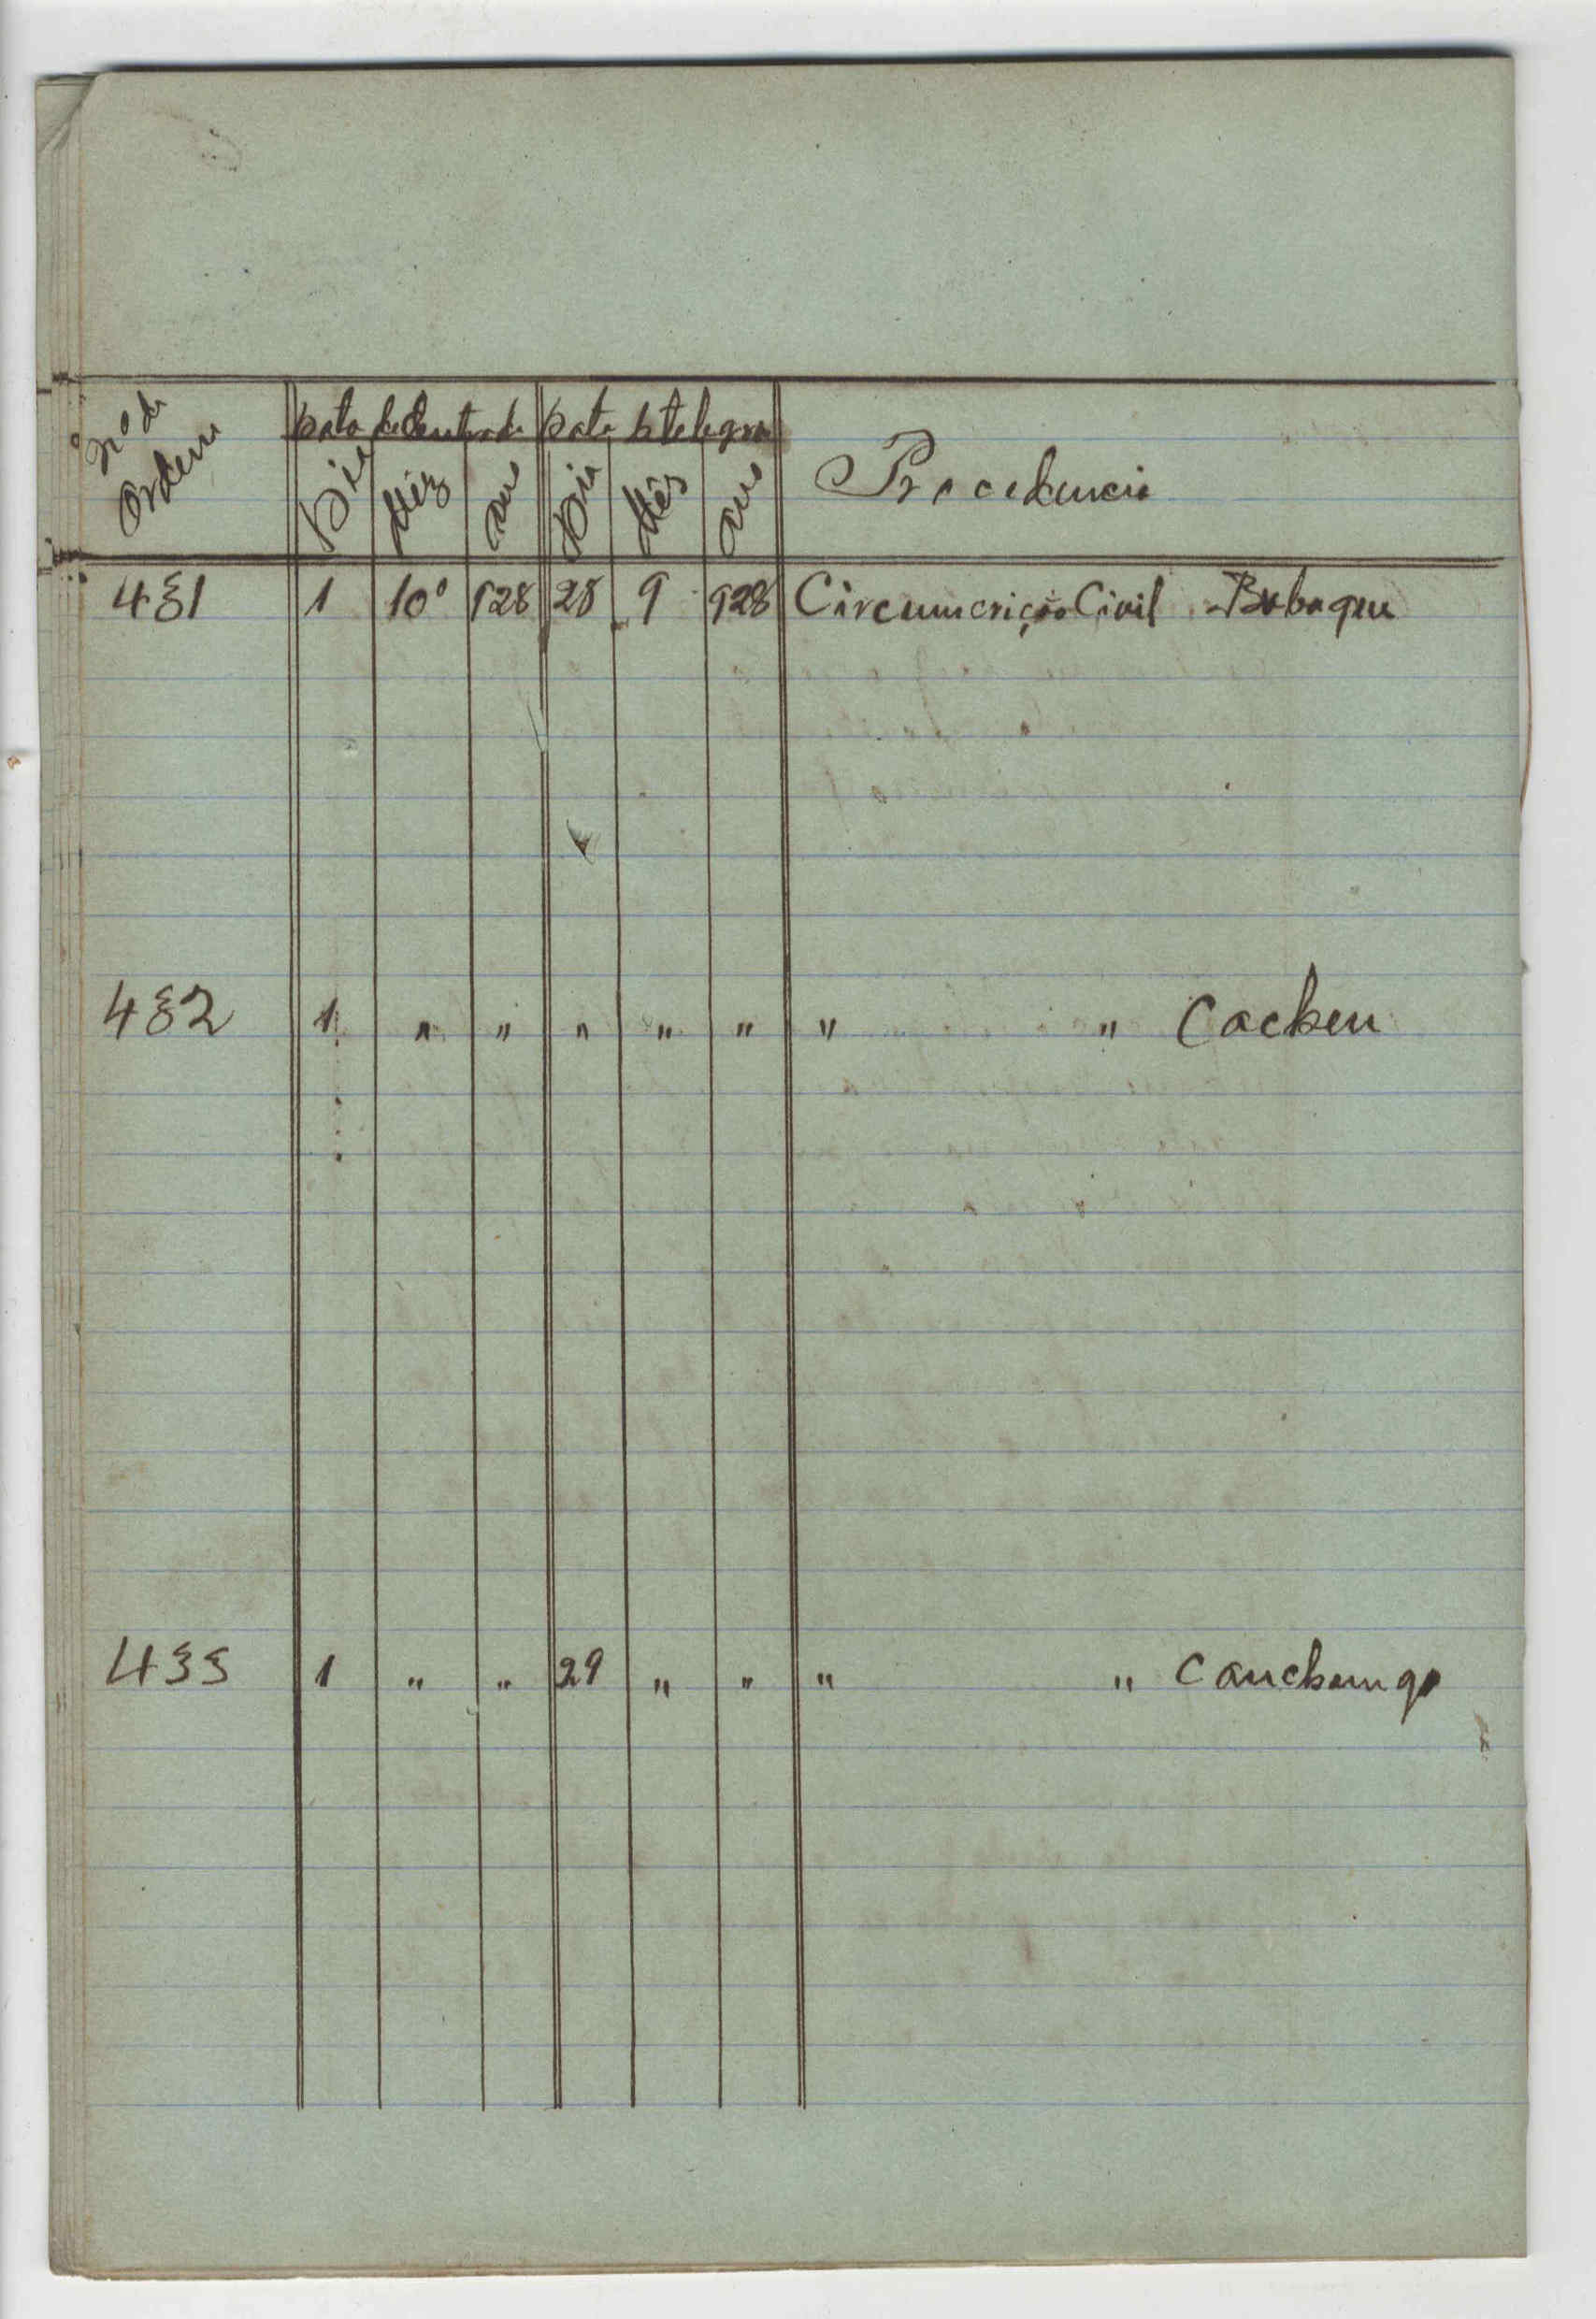 nº de Data de entrada Data telegra
Ordem Dia Mêz ano Dia Mês ano Procedencia
431 1 10º 928 28 9 928 Circumcrição Civil Bubaque
432 1 " " " " " " " Cacheu
433 1 " " 29 " " " " Canchungo